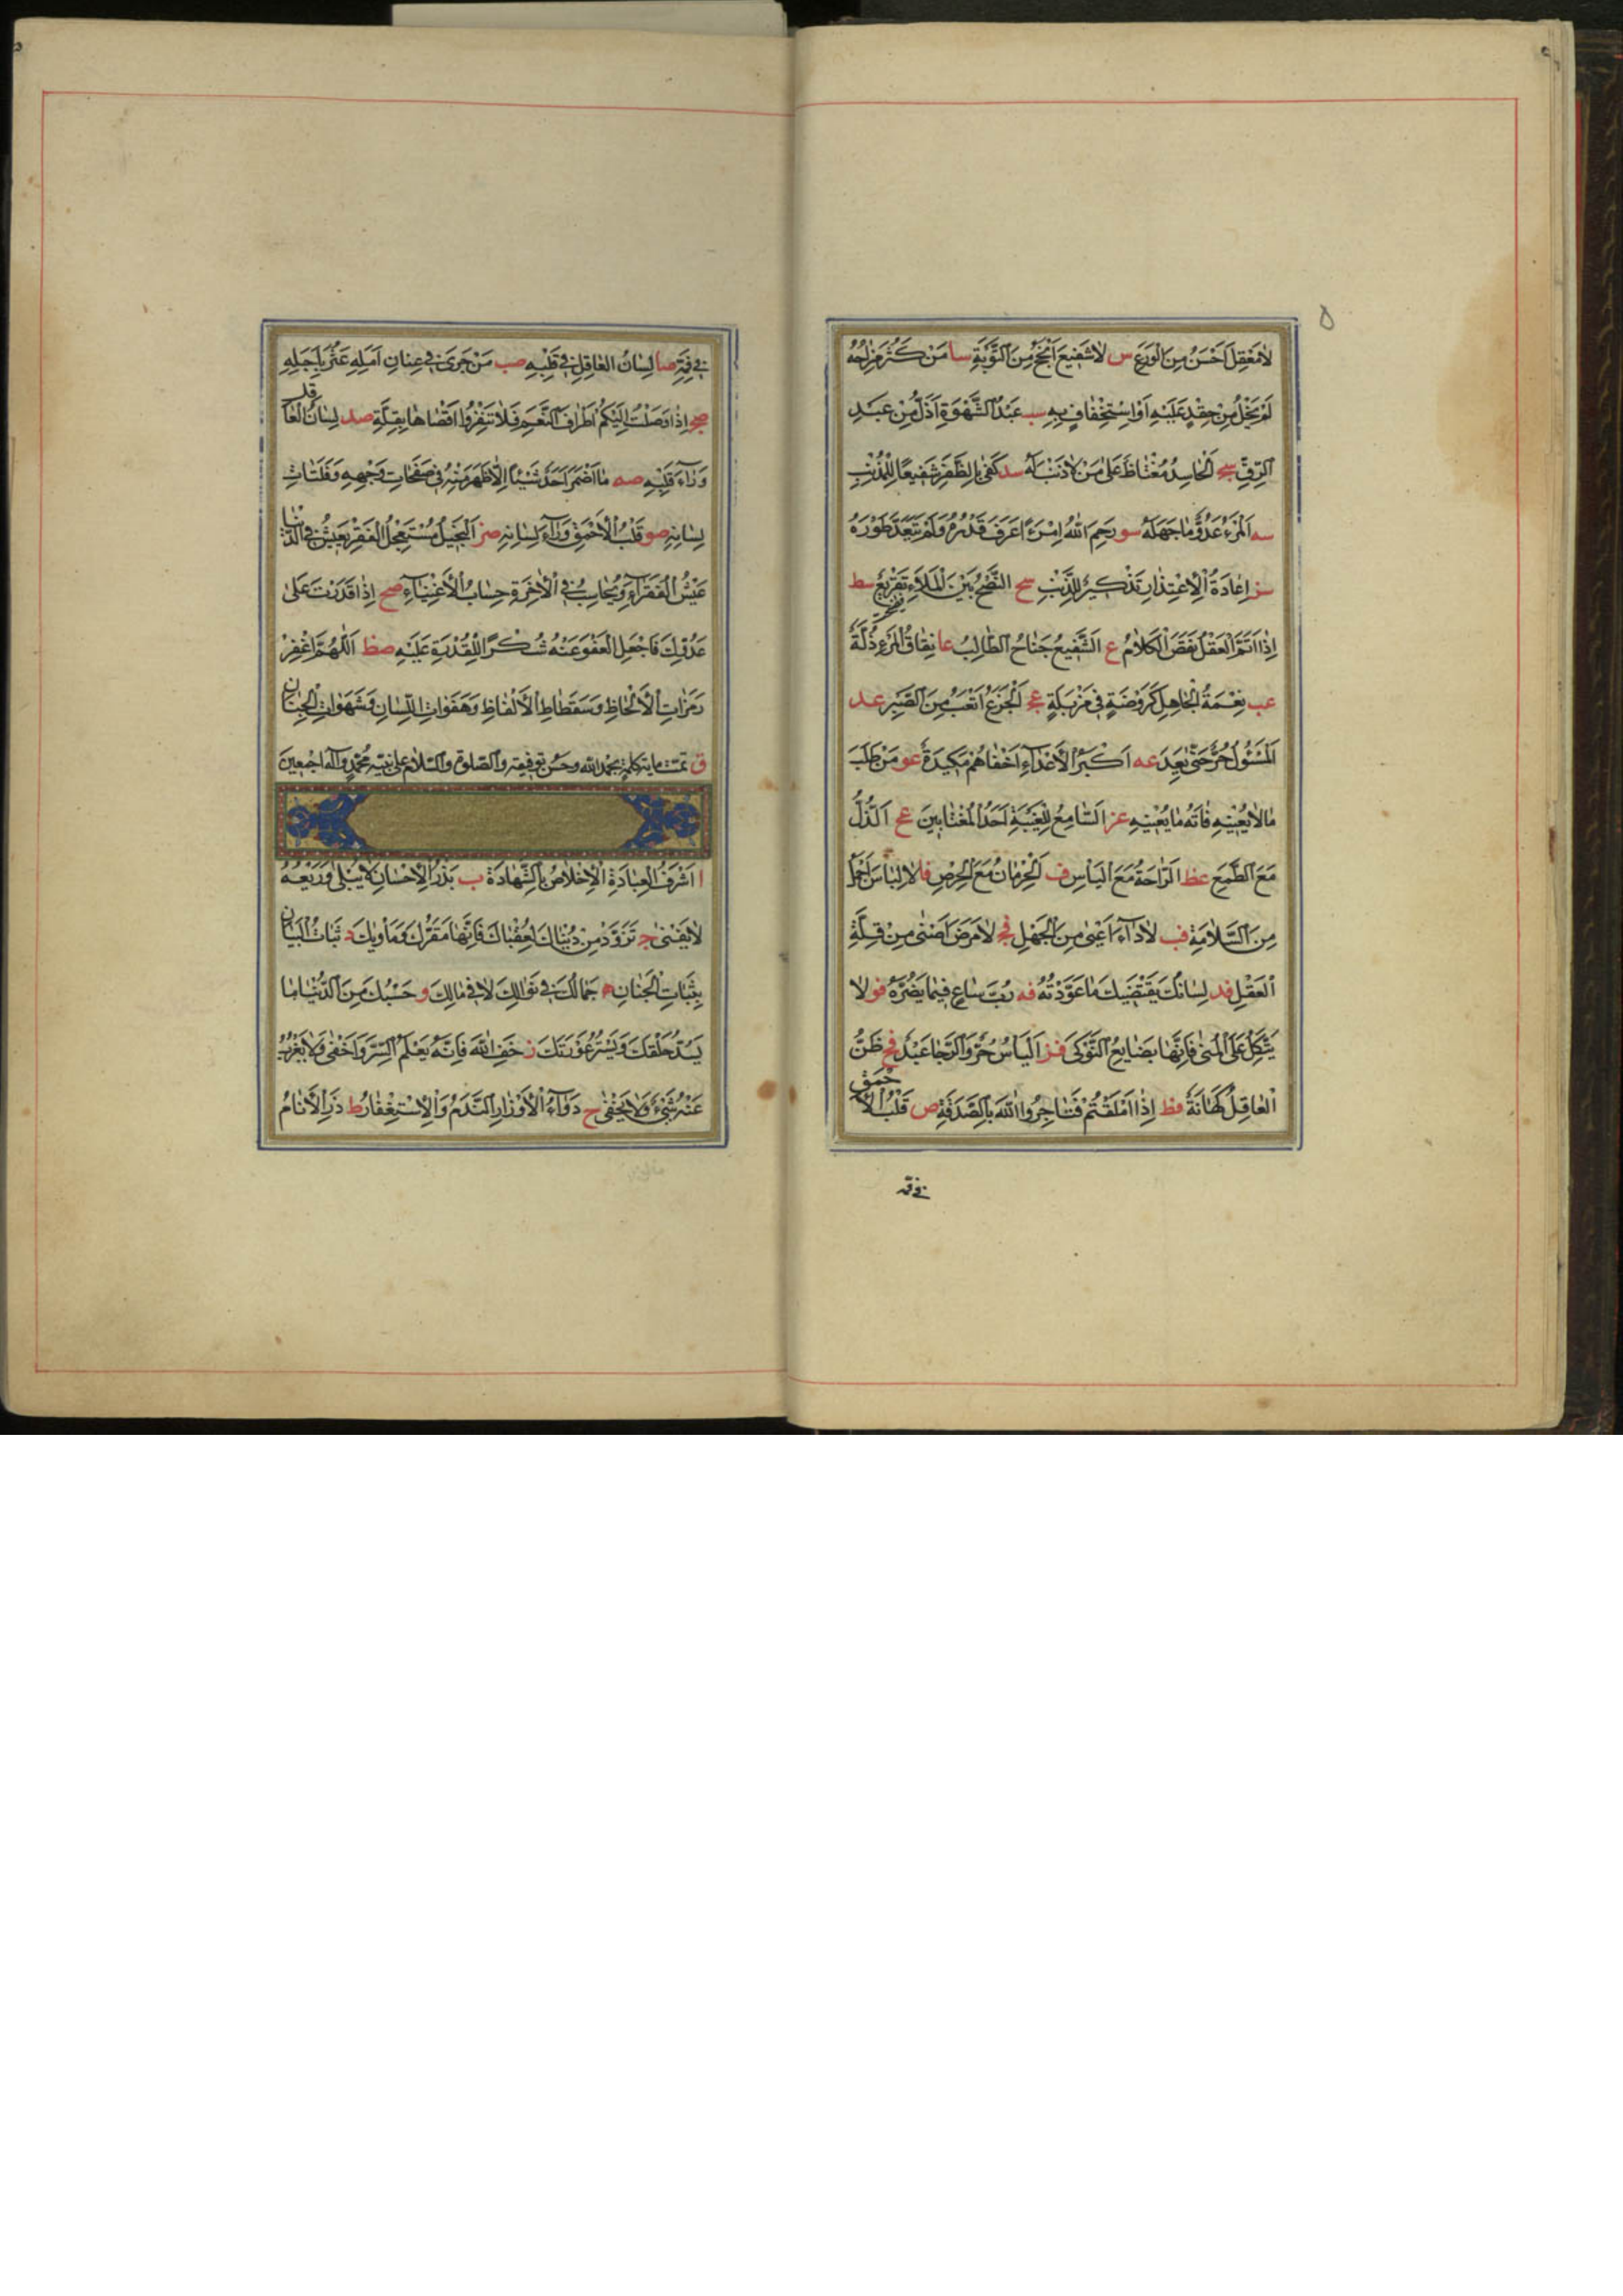 ٥
لا مَعْقِلَ اَحْسَنُ مِنَ الْوَرَعِ س لا شَفيعَ اَنْجَحُ مِنَ التَّوْبَةِ سا مَنْ كَثُرَ مِزاحُهُ
لَمْ يَخْلُ مِنْ حِقْدٍ عَلَيْهِ اَوْ اِسْتِخْفافٍ بِهِ سب عَبْدُ الشَّهْوَةِ اَذَلُّ مِنْ عَبْدِ
الرِّقِّ سج اَلْحاسِدُ مُغْتاظٌ عَلى مَنْ لا ذَنْبَ لَهُ سد كَفى بِالظَّفَرِ شَفيعًا لِلْمُذْنِبِ
سه اَلْمَرْءُ عَدُوُّ ما جَهِلَهُ سو رَحِمَ اللهُ اِمْرَءً اعَرَفَ قَدْرَهُ وَلَمْ يَتَعَدَّ طَوْرَهُ
سز اِعادَةُ الْاِعْتِذارِ تَذْكيرٌ لِلذَّنْبِ سح النُّصْحُ بَيْنَ الْمَلَاءِ تَقْريعٌ سط
اِذا تَمَّ الْعَقْلُ نَقَصَ الْكَلامُ ع الشَّفيعُ جَناحُ الطّالِبِ عا نِفاقُ الْمَرْءِ ذِلَّةٌ
عب نِعْمَةُ الْجاهِلِ كَرَوْضَةٍ في مَزْبَلَةٍ عج اَلْجَزَعُ اَتْعَبُ مِنَ الصَّبْرِ عد
اَلْمَسْئُولُ حُرٌّ حَتّى يَعِدَ عه اَكْبَرُ الْاَعْداءِ اَخْفاهُمْ مَكيدَةً عو مَنْ طَلَبَ
ما لا يَعْنيهِ فاتَهُ ما يَعْنيهِ عز اَلسّامِعُ لِلْغيبَةِ اَحَدُ الْمُغْتابينَ عح اَلذُّلُّ
مَعَ الطَّمَعِ عط الرّاحَةُ مَعَ الْيَأْسِ ف اَلْحِرْمانُ مَعَ الْحِرْصِ فا لا لِباسَ اَجْمَلُ
مِنَ السَّلامَةِ فب لا داءَ اَعْيى مِنَ الْجَهْلِ فج لا مَرَضَ اَضْنى مِنْ قِلَّةِ
الْعَقْلِ فد لِسانُكَ يَقْتَضيكَ ما عَوَّدْتَهُ فه رُبَّ ساعٍ فيما يَضُرُّهُ فو لا
يَتَّكِلْ عَلَى الْمُنى فَاِنَّها بَضايِعُ النَّوْكى فز اَلْيَأْسُ حُرٌّ وَالرَّجا عَبْدٌ فح ظَنُّ
الْعاقِلِ كَهانَةٌ فط اِذا اَمْلَقْتُمْ فَتاجِرُوا اللهَ بِالصَّدَقَةِ ص قَلْبُ الْاَحْمَقِ
في فيه
في فيهِ صا لِسانُ الْعاقِلِ في قَلْبِهِ صب مَنْ جَرى في عِنانِ اَمَلِهِ عَثَرَ بِاَجَلِهِ
صج اِذا وَصَلَتْ اِلَيْكُمْ اَطْرافُ النِّعَمِ فَلا تُنَفِّرُوا اَقْصاها بِقِلَّةِ صد لِسانُ الْعاقل
وَراءَ قَلْبِهِ صه ما اَضْمَرَ اَحَدٌ شَيْئًا اِلّا ظَهَرَ مِنْهُ في صَفَحاتِ وَجْهِهِ وَفَلَتاتِ
لِسانِهِ صو قَلْبُ الْاَحْمَقِ وَراءَ لِسانِهِ صز اَلْبَخيلُ مُسْتَعْجِلُ الْفَقْرِ يَعيشُ في الدُّنْيا
عَيْشَ الْفُقَراءِ وَيُحاسَبُ فِي الْاٰخِرَةِ حِسابَ الْاَغْنِياءِ صح اِذا قَدَرْتَ عَلى
عَدُوِّكَ فَاجْعَلِ الْعَفْوَ عَنْهُ شُكْرًا لِلْقُدْرَةِ عَلَيْهِ صط اَللّهُمَّ اغْفِرْ
رَمَزاتِ الْاَلْحاظِ وَسَقَطاطِ الْاَلْفاظِ وَهَفَواتِ اللِّسانِ وَشَهَواتِ الْجَنانِ
ق تمت مايه كلمة بحمد الله وحسن توفيقه والصلوة والسلام على نبيه محمد وآله اجمعين
ا اَشْرَفُ الْعِبادَةِ الْاِخْلاصُ بِالشَّهادَةِ ب بَذْرُ الْاِحْسانِ لا يَبْلى وَرَيْعُهُ
لا يَفْنى ج تَزَوَّدْ مِنْ دُنْياكَ لِعُقْباكَ فَاِنَّها مَقَرُّكَ وَمَأْويكَ د ثَباتُ الْبَيانِ
بِثَباتِ الْجَنانِ ه جَمالُكَ في نَوالِكَ لا في مالِكَ و حَسْبُكَ مِنَ الدُّنْيا ما
يَسُدُّ حَلْقَكَ وَيَسْتُرُ عَوْرَتَكَ ز خَفِ اللهَ فَاِنَّهُ يَعْلَمُ السِّرَّ وَاَخْفى وَلا يَعْزُبُ
عَنْهُ شَيْءٌ وَلا يَخْفى ح دَواءُ الْاَوْزارِ النَّدَمُ وَالْاِسْتِغْفارُ ط ذَرِ الْاَنامَ